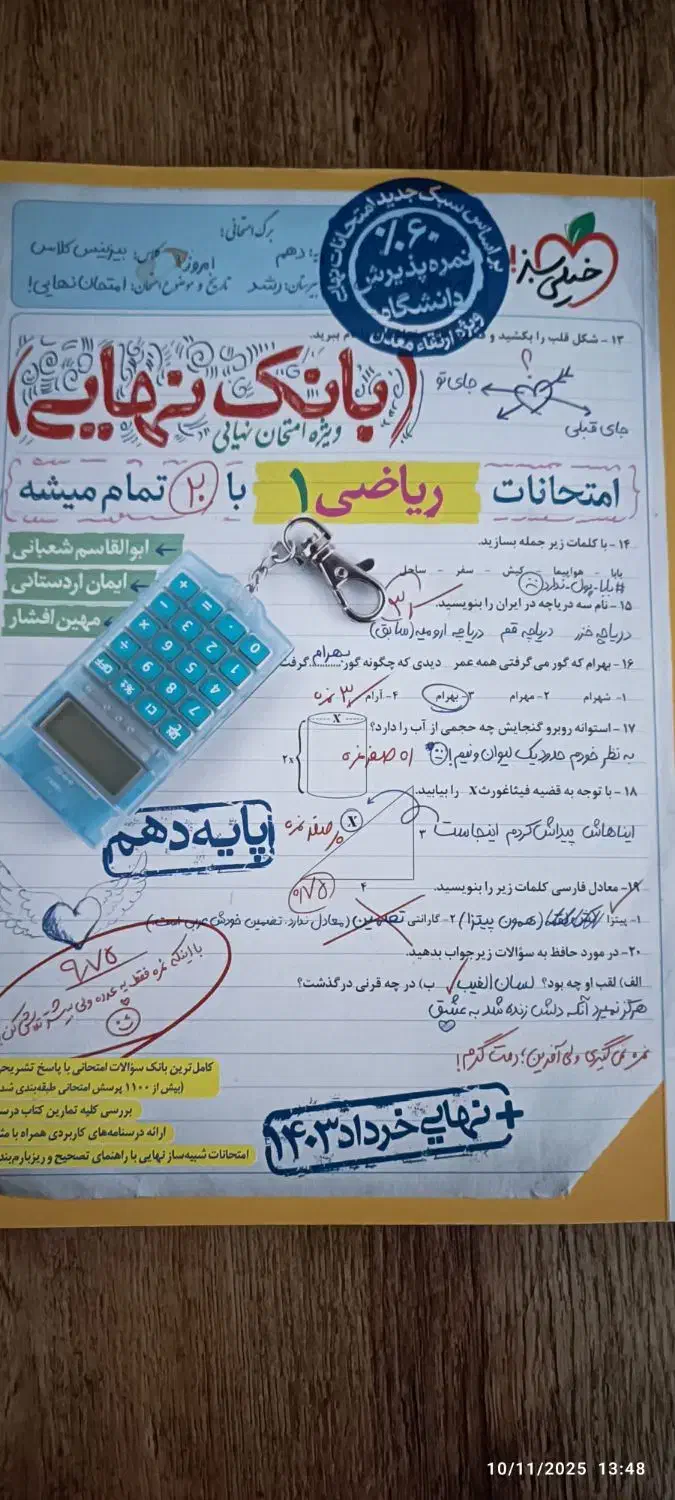 بر اساس سبک جدید امتحانات نهایی
۶۰٪
نمره پذیرش
دانشگاه
ویژه ارتقاء معدل
خیلی سبز!
برگ امتحانی!
دهم
کلاس: بیزینس کلاس
امروز
رشد
تاریخ و موضوع امتحان: امتحان نهایی!
۱۳ - شکل قلب را بکشید و
نام ببرید.
؟
جای تو
جای قبلی
(بانک نهایی)
ویژه امتحان نهایی
امتحانات ریاضی ۱ با ۲۰ تمام میشه
ابوالقاسم شعبانی
ایمان اردستانی
مهین افشار
۱۴ - با کلمات زیر جمله بسازید.
بابا - هواپیما - کیش - سفر - ساحل
#بابا-پول-ندارد
۱۵ - نام سه دریاچه در ایران را بنویسید.
دریاچه خزر دریاچه قم دریاچه ارومیه (سابق)
۱۶ - بهرام که گور می‌گرفتی همه عمر دیدی که چگونه گور بهرام گرفت
۱- شهرام ۲- مهرام ۳- بهرام ۴- آرام
۱۷ - استوانه روبرو گنجایش چه حجمی از آب را دارد؟
x
۲x
به نظر خودم حدود یک لیوان و نیم!
صفر نمره
۱۸ - با توجه به قضیه فیثاغورث x را بیابید.
ایناهاش پیداش کردم اینجاست
x
۳
۴
صفر نمره
۰/۷۵
پایه دهم
۱۹ - معادل فارسی کلمات زیر را بنویسید.
۱- پیتزا (همون پیتزا) ۲- گارانتی تضمین (معادل ندارد، تضمین خودش عربی است.)
۲۰ - در مورد حافظ به سؤالات زیر جواب بدهید.
الف) لقب او چه بود؟ لسان الغیب ب) در چه قرنی درگذشت؟
هرگز نمیرد آنکه دلش زنده شد به عشق
۹/۷۵
با اینکه نمره فقط یه عدده ولی بیشتر تلاش کن
نمره نمی‌گیری ولی آفرین؛ دمت گرم!
کامل‌ترین بانک سؤالات امتحانی با پاسخ تشریحی
(بیش از ۱۱۰۰ پرسش امتحانی طبقه‌بندی شده
بررسی کلیه تمارین کتاب
ارائه درسنامه‌های کاربردی همراه با
امتحانات شبیه‌ساز نهایی با راهنمای تصحیح و ریزبارم
+ نهایی خرداد ۱۴۰۳
0
.
=
+
1
2
3
-
4
5
6
×
7
8
9
÷
OFF
10/11/2025 13:48